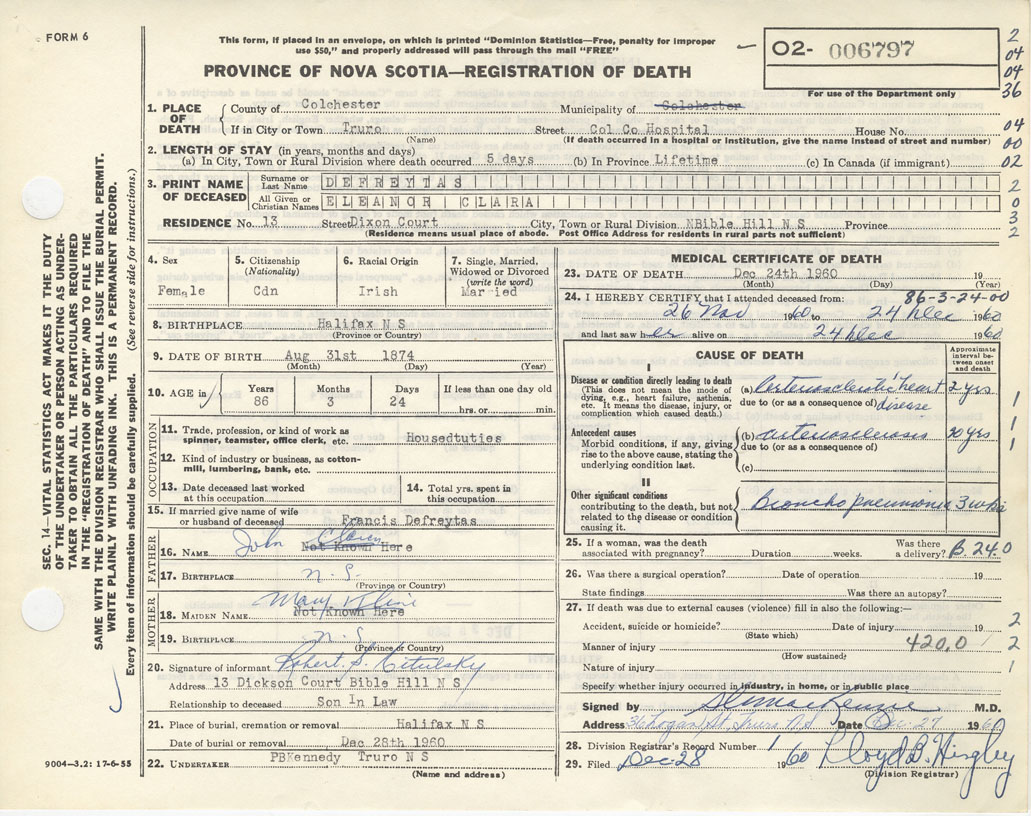 FORM 6
This form, if placed in an envelope, on which is printed "Dominion Statistics—Free, penalty for improper
use $50," and properly addressed will pass through the mail "FREE"
PROVINCE OF NOVA SCOTIA—REGISTRATION OF DEATH
02- 006797
For use of the Department only
2
04
04
36
04
00
02
2
0
3
2
SEC. 14—VITAL STATISTICS ACT MAKES IT THE DUTY
OF THE UNDERTAKER OR PERSON ACTING AS UNDER-
TAKER TO OBTAIN ALL THE PARTICULARS REQUIRED
IN THE "REGISTRATION OF DEATH" AND TO FILE THE
SAME WITH THE DIVISION REGISTRAR WHO SHALL ISSUE THE BURIAL PERMIT.
WRITE PLAINLY WITH UNFADING INK. THIS IS A PERMANENT RECORD.
Every item of information should be carefully supplied. (See reverse side for instructions.)
1. PLACE OF DEATH
County of Colchester Municipality of Colchester
If in City or Town Truro Street Col Co Hospital House No.
(Name) (If death occurred in a hospital or institution, give the name instead of street and number)
2. LENGTH OF STAY (in years, months and days)
(a) In City, Town or Rural Division where death occurred 5 days (b) In Province Lifetime (c) In Canada (if immigrant)
3. PRINT NAME OF DECEASED
Surname or Last Name DEFREYTAS
All Given or Christian Names ELEANOR CLARA
RESIDENCE No. 13 Street Dixon Court City, Town or Rural Division NBible Hill N S Province
(Residence means usual place of abode. Post Office Address for residents in rural parts not sufficient)
4. Sex Female
5. Citizenship (Nationality) Cdn
6. Racial Origin Irish
7. Single, Married, Widowed or Divorced (write the word) Married
8. BIRTHPLACE Halifax N S
(Province or Country)
9. DATE OF BIRTH Aug 31st 1874
(Month) (Day) (Year)
10. AGE in Years 86 Months 3 Days 24 If less than one day old hrs. or min.
OCCUPATION
11. Trade, profession or kind of work as spinner, teamster, office clerk, etc. Housedtuties
12. Kind of industry or business, as cotton-mill, lumbering, bank, etc.
13. Date deceased last worked at this occupation
14. Total yrs. spent in this occupation
15. If married give name of wife or husband of deceased Francis Defreytas
FATHER
16. NAME John Not Known Here
17. BIRTHPLACE N. S.
(Province or Country)
MOTHER
18. MAIDEN NAME Mary Not Known Here
19. BIRTHPLACE N. S.
(Province or Country)
20. Signature of informant Robert S.
Address 13 Dickson Court Bible Hill N S
Relationship to deceased Son In Law
21. Place of burial, cremation or removal Halifax N S
Date of burial or removal Dec 28th 1960
22. UNDERTAKER PBKennedy Truro N S
(Name and address)
9004—3.2: 17-6-55
MEDICAL CERTIFICATE OF DEATH
23. DATE OF DEATH Dec 24th 1960 19
(Month) (Day) (Year)
24. I HEREBY CERTIFY that I attended deceased from: 86-3-24-00
26 Nov 1960 to 24 Dec 1960
and last saw her alive on 24 Dec 1960
CAUSE OF DEATH
Approximate interval between onset and death
I
Disease or condition directly leading to death
(This does not mean the mode of dying, e.g., heart failure, asthenia, etc. It means the disease, injury, or complication which caused death.)
(a) Arteriosclerotic heart disease 2 yrs
due to (or as a consequence of)
Antecedent causes
Morbid conditions, if any, giving rise to the above cause, stating the underlying condition last.
(b) arteriosclerosis 20 yrs
due to (or as a consequence of)
(c)
II
Other significant conditions
contributing to the death, but not related to the disease or condition causing it.
Broncho pneumonia 3 wks
1
1
1
25. If a woman, was the death associated with pregnancy? Duration weeks. Was there a delivery? B. 24.0
26. Was there a surgical operation? Date of operation 19
State findings Was there an autopsy?
27. If death was due to external causes (violence) fill in also the following:—
Accident, suicide or homicide? Date of injury 19
(State which)
Manner of injury 420.0
(How sustained)
Nature of injury
2
2
1
Specify whether injury occurred in industry, in home, or in public place
Signed by MacKenzie M.D.
Address Truro N S Date Dec 27 1960
28. Division Registrar's Record Number 1
29. Filed Dec 28 1960 Lloyd B. Hingley
(Division Registrar)